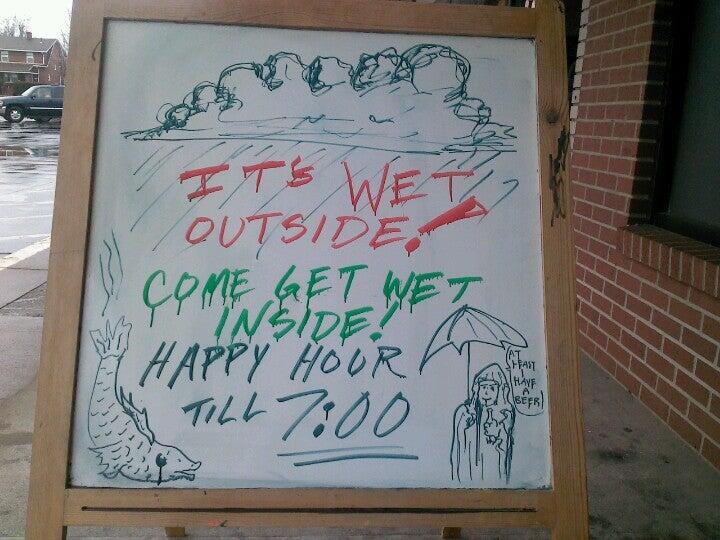 IT'S WET
OUTSIDE!
COME GET WET
INSIDE!
HAPPY HOUR
TILL 7:00
AT
LEAST
I
HAVE
A
BEER!